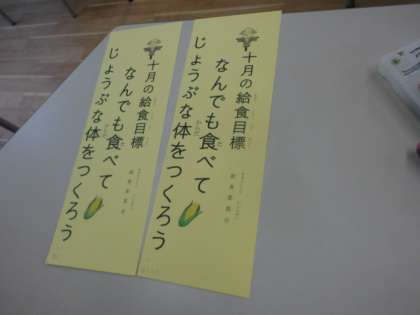 十月の給食目標
なんでも食べて
じょうぶな体をつくろう
十月の給食目標
なんでも食べて
じょうぶな体をつくろう